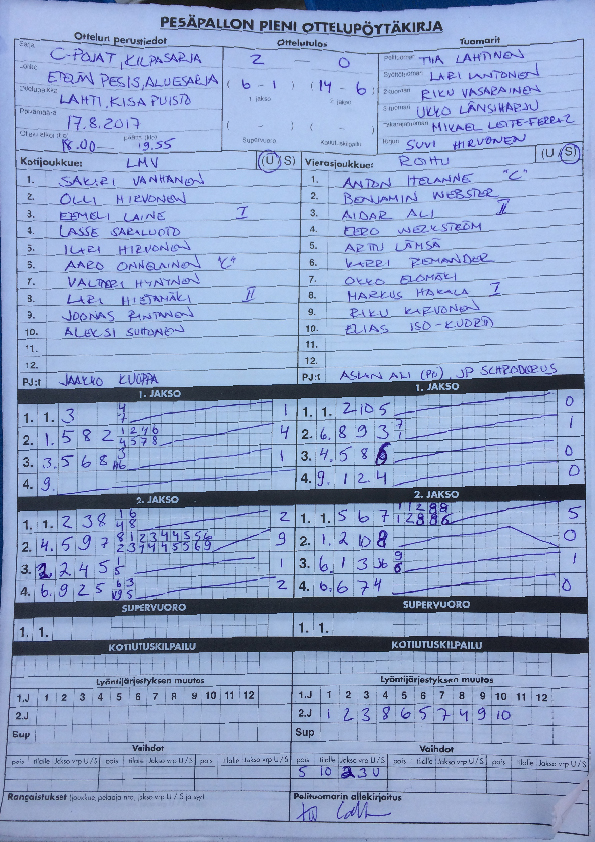 PESÄPALLON PIENI OTTELUPÖYTÄKIRJA
Ottelun perustiedot Ottelutulos Tuomarit
Sarja C-POJAT, KILPASARJA 2 0 Pelituomari TIIA LAHTINEN
ETELÄN PESIS, ALUESARJA (6-1) (14-6) Syöttötuomari LARI LANTONEN
1 jakso 2 jakso
LAHTI, KISAPUISTO 2-tuomari RIKU VASARAINEN
Päivämäärä 17.8.2017 3-tuomari UKKO LÄNSIHARJU
Takarajatuomari MIKAEL LEITE-FERRAZ
18.00 19.55 Supervuoro Kotiut.kilpailu Kirjuri SUVI HIRVONEN
Kotijoukkue: LMV (U/S) Vierasjoukkue: ROIHU (U/S)
1. SAKARI VANHANEN 1. ANTON HELANNE "C"
2. OLLI HIRVONEN 2. BENJAMIN WEBSTER
3. EEMELI LAINE I 3. AIDAR ALI II
4. LASSE SARALUOTO 4. EERO WERKSTRÖM
5. ILARI HIRVONEN 5. ARTTU LÄMSÄ
6. AARO ONNELAINEN "C" 6. KARRI REMANDER
7. VALTTERI HYNTINEN 7. OKKO ELOMÄKI
8. LARI HIETAMÄKI II 8. MARKUS HAKALA I
9. JOONAS RINTANEN 9. RIKU KARVONEN
10. ALEKSI SUHONEN 10. ELIAS ISO-KUORTTI
11. 11.
12. 12.
PJ:t JAAKKO KUOPPA PJ:t ASLAN ALI (PJ), JP SCHRODERUS
1. JAKSO 1. JAKSO
1. 1. 3 4 7 1 1. 1. 2 10 5 0
2. 1. 5 8 2 1 2 4 6 4 5 7 8 4 2. 6. 8 9 3 7 1 1
3. 3. 5 6 8 3 1 3. 4. 5 8 6 0
4. 9. 4. 9. 1 2 4 0
2. JAKSO 2. JAKSO
1. 1. 2 3 8 1 6 4 8 2 1. 1. 5 6 7 1 1 2 8 8 1 2 8 8 6 5
2. 4. 5 9 7 8 1 2 3 4 4 5 5 6 2 3 1 4 4 5 5 6 9 9 2. 1. 2 10 8 0
3. 2. 2 4 5 1 3. 6. 1 3 9 6 1
4. 6. 9 2 5 6 3 10 5 2 4. 6. 6 7 4 0
SUPERVUORO SUPERVUORO
1. 1. 1. 1.
KOTIUTUSKILPAILU KOTIUTUSKILPAILU
Lyöntijärjestyksen muutos Lyöntijärjestyksen muutos
1.J 1 2 3 4 5 6 7 8 9 10 11 12 1.J 1 2 3 4 5 6 7 8 9 10 11 12
2.J 2.J 1 2 3 8 6 5 7 4 9 10
Sup Sup
Vaihdot Vaihdot
pois tilalle Jakso vrp U / S pois tilalle Jakso vrp U / S pois tilalle Jakso vrp U / S pois tilalle Jakso vrp U / S
5 10 2 3 U
Rangaistukset (joukkue, pelaaja nro, jakso vrp U / S ja syy) Pelituomarin allekirjoitus